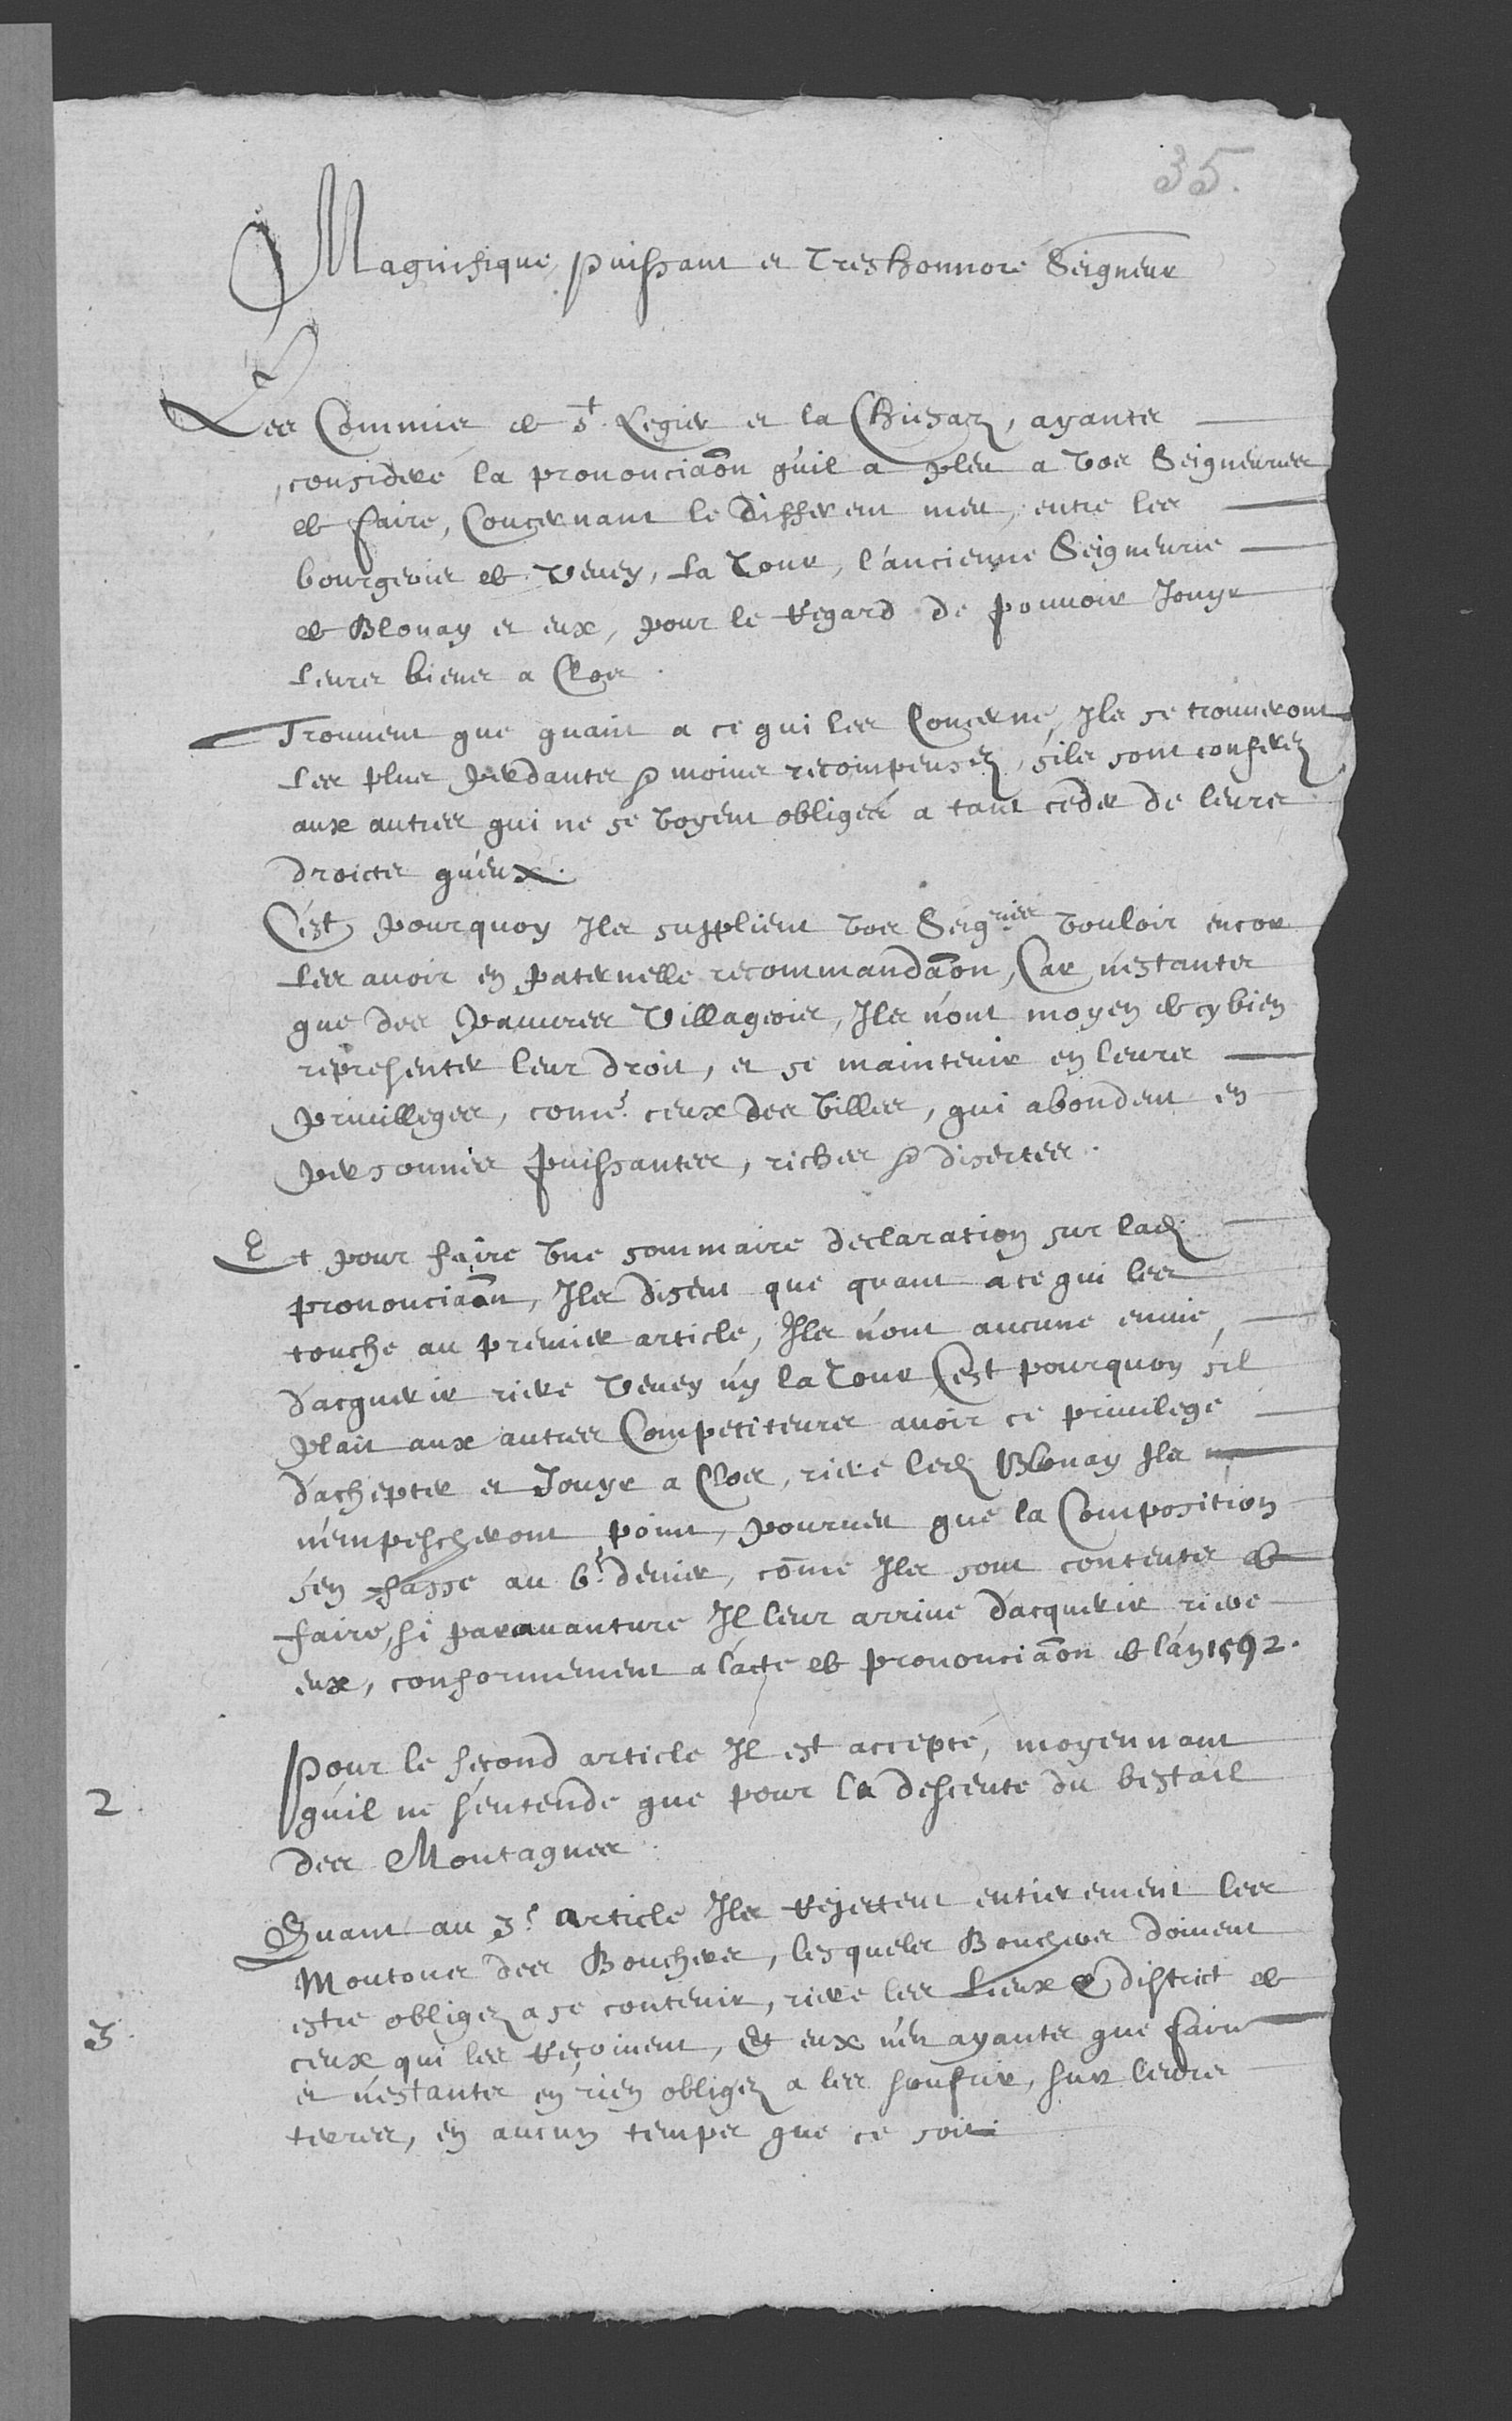 35.
Magnifique, puissant et treshonnoré Seigneur
Les Commis de st. Legier et la Chiesaz, ayants
consideré la prononciaon qu'il a pleu a vos Seigneuries
de faire, Concernant le different meu, entre les
bourgeois de Vevey, La Tour, l'ancienne Seigneurie
de Blonay et eux, pour le regard de pouvoir Jouyr
leurs biens a Clos.
Trouvent que quant a ce qui les Concerne, Ils se trouveront
les plus perdants & moins recompensez, s'ils sont conferez
aux autres qui ne se voyent obligés a tant ceder de leurs
droicts qu'eux.
C'est pourquoy Ils supplient vos Seigries vouloir encor
les avoir en paternelle recommandaon, Car n'estants
que des pauvres Villageois, Ils n'ont moyen de cy bien
representer leur droit, et se maintenir en leurs
privilleges, come ceux des villes, qui abondent en
personnes puissantes, riches & disertes.
Et pour faire vne sommaire declaration sur lad.
prononciaon, Ils disent que quant a ce qui les
touche au premier article, Ils n'ont aucune envie,
d'acquerir riere Vevey ny la Tour C'est pourquoy s'il
plait aux autres Competiteurs avoir ce privilege
d'achepter et Jouyr a Clos, riere led. Blonay Ils
n'empescheront point, pourveu que la Composition
s'en fasse au 6.e denier, come Ils sont contents de
faire, si paravanture Il leur arrive d'acquerir riere
eux, conformement a l'acte de prononciaon de l'an 1592.
2. Pour le second article Il est accepté, moyennant
qu'il ne s'entende que pour la descente du bestail
des Montagnes.
Quant au 3.e article Ils rejettent entierement les
Moutons des Bouchers, lesquels Bouchers doivent
estre obligez a se contenir, riere les Lieux & district de
3. ceux qui les reçoivent, Et eux n'en ayants que faire
et n'estants en rien obligez a les souffrir, sur leurs
terres, en aucun temps que ce soit.